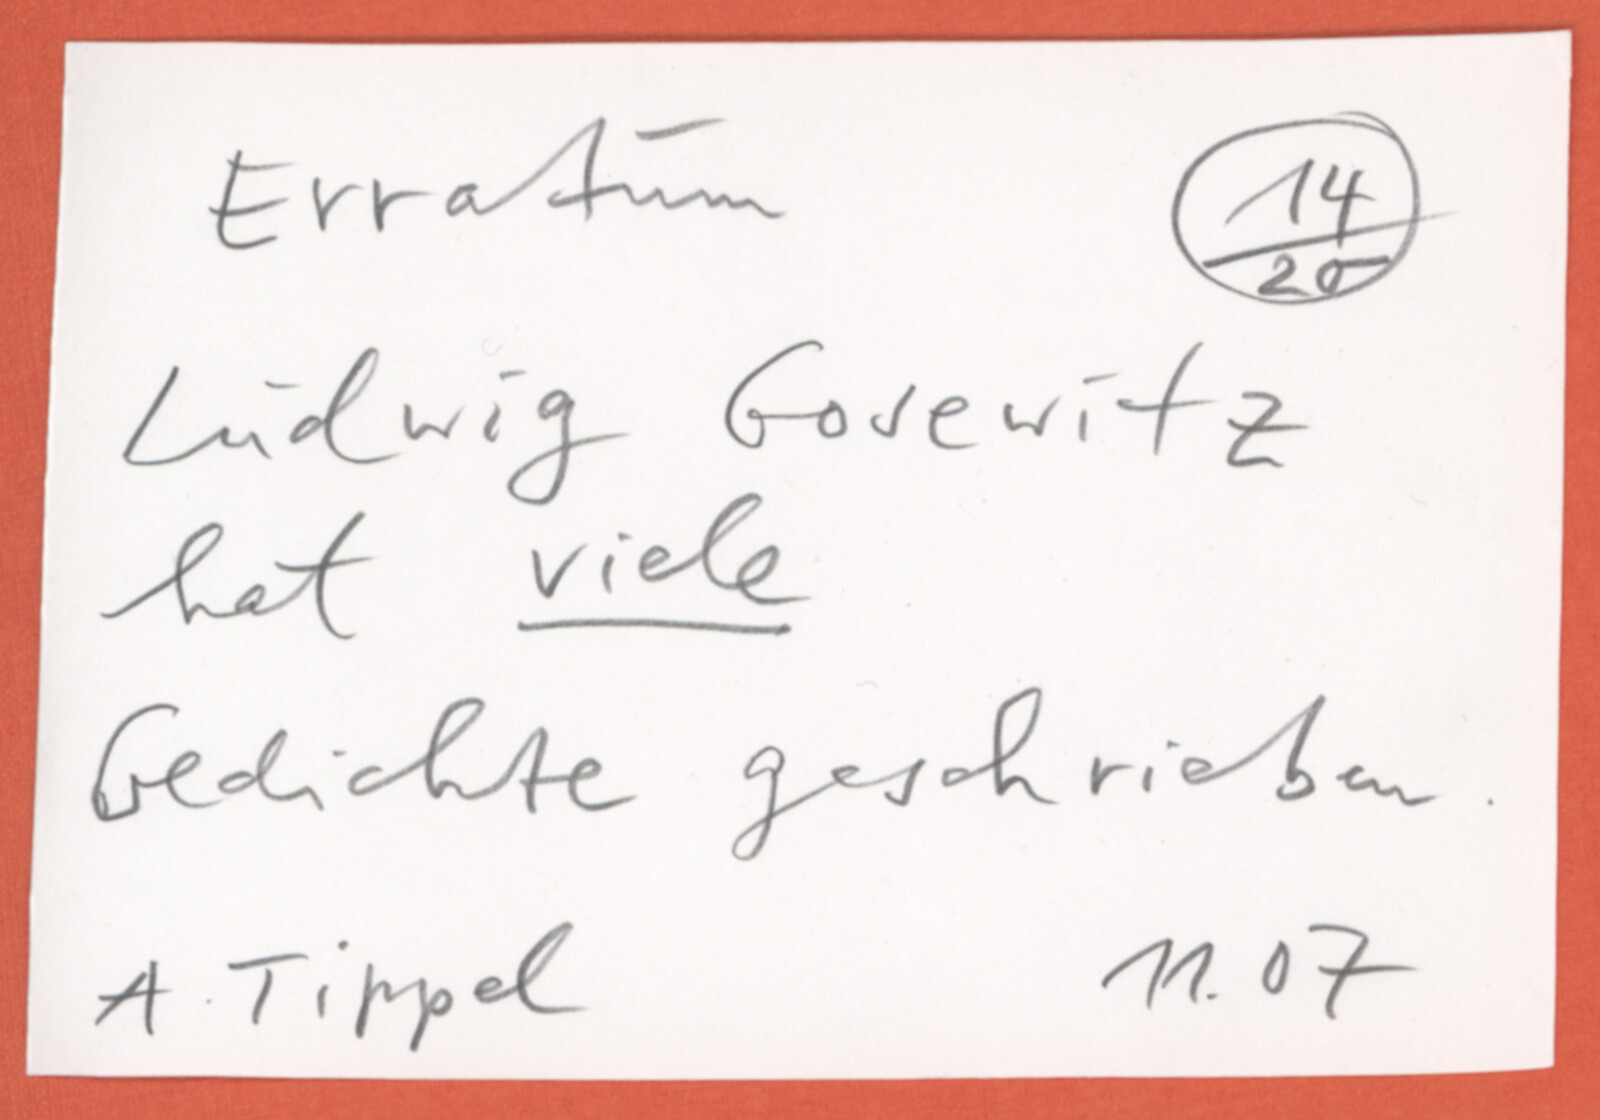 Erratum
14/20
Ludwig Gosewitz
hat viele
Gedichte geschrieben.
A. Tippel 11.07